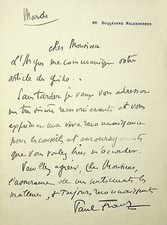 Mardi
BOULEVARD MALESHERBES
Cher Monsieur
L'Argus me communique votre
article du
sans tarder je veux vous adresser
mes très sincères remerciements et vous
exprimer ma vive reconnaissance
pour les conseils et encouragements
que vous voulez bien m'accorder.
Veuillez agréer, Cher Monsieur,
l'assurance de mes sentiments les
meilleurs, et toujours reconnaissants
Paul Franz